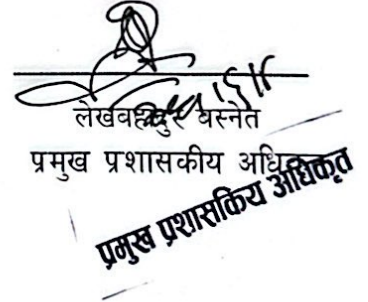 लेखबहादुर बस्नेत
प्रमुख प्रशासकीय अधिकृत
प्रमुख प्रशासकिय अधिकृत